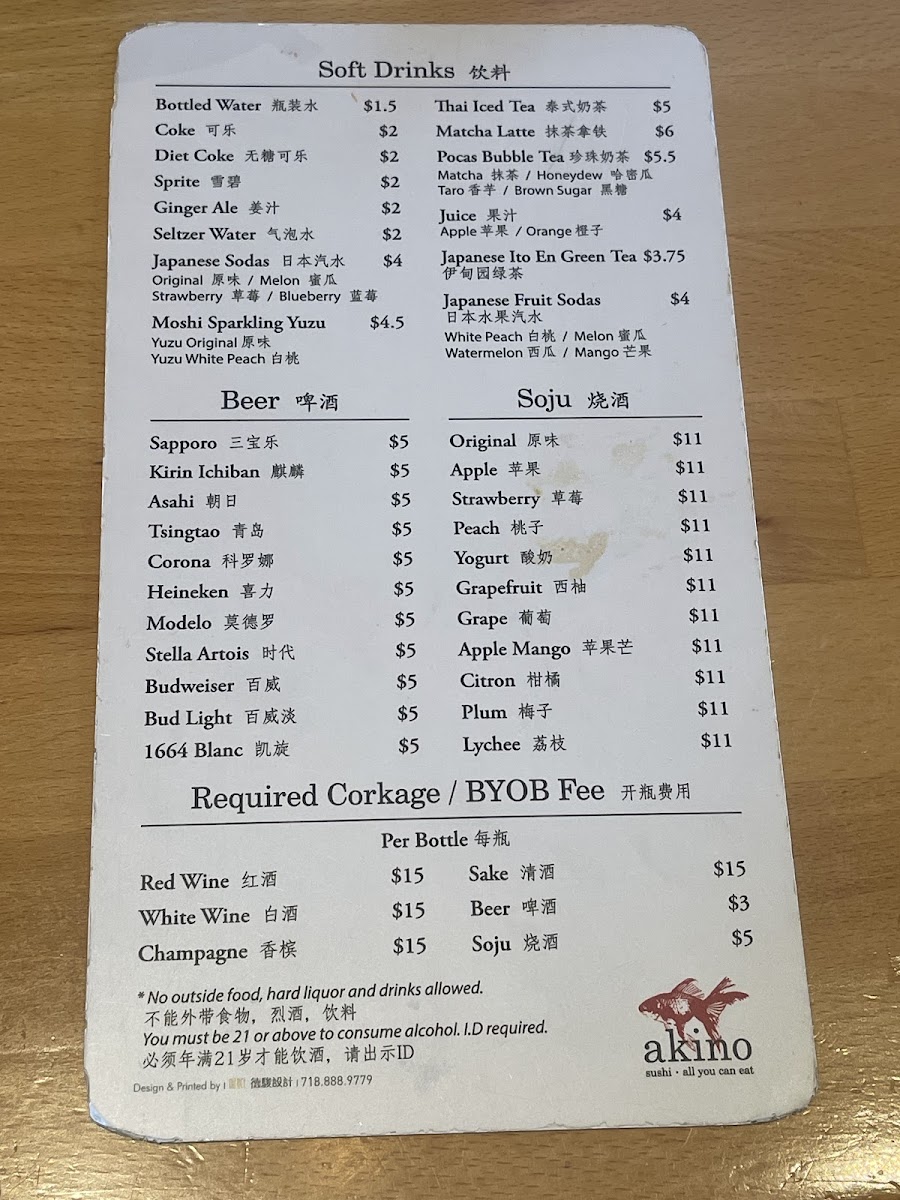 Soft Drinks 饮料
Bottled Water 瓶装水 $1.5
Coke 可乐 $2
Diet Coke 无糖可乐 $2
Sprite 雪碧 $2
Ginger Ale 姜汁 $2
Seltzer Water 气泡水 $2
Japanese Sodas 日本汽水 $4
Original 原味 / Melon 蜜瓜
Strawberry 草莓 / Blueberry 蓝莓
Moshi Sparkling Yuzu $4.5
Yuzu Original 原味
Yuzu White Peach 白桃
Thai Iced Tea 泰式奶茶 $5
Matcha Latte 抹茶拿铁 $6
Pocas Bubble Tea 珍珠奶茶 $5.5
Matcha 抹茶 / Honeydew 哈密瓜
Taro 香芋 / Brown Sugar 黑糖
Juice 果汁 $4
Apple 苹果 / Orange 橙子
Japanese Ito En Green Tea $3.75
伊甸园绿茶
Japanese Fruit Sodas $4
日本水果汽水
White Peach 白桃 / Melon 蜜瓜
Watermelon 西瓜 / Mango 芒果
Beer 啤酒
Sapporo 三宝乐 $5
Kirin Ichiban 麒麟 $5
Asahi 朝日 $5
Tsingtao 青岛 $5
Corona 科罗娜 $5
Heineken 喜力 $5
Modelo 莫德罗 $5
Stella Artois 时代 $5
Budweiser 百威 $5
Bud Light 百威淡 $5
1664 Blanc 凯旋 $5
Soju 烧酒
Original 原味 $11
Apple 苹果 $11
Strawberry 草莓 $11
Peach 桃子 $11
Yogurt 酸奶 $11
Grapefruit 西柚 $11
Grape 葡萄 $11
Apple Mango 苹果芒 $11
Citron 柑橘 $11
Plum 梅子 $11
Lychee 荔枝 $11
Required Corkage / BYOB Fee 开瓶费用
Per Bottle 每瓶
Red Wine 红酒 $15
White Wine 白酒 $15
Champagne 香槟 $15
Sake 清酒 $15
Beer 啤酒 $3
Soju 烧酒 $5
* No outside food, hard liquor and drinks allowed.
不能外带食物, 烈酒, 饮料
You must be 21 or above to consume alcohol. I.D required.
必须年满21岁才能饮酒, 请出示ID
Design & Printed by | 設計 | 718.888.9779
akino
sushi · all you can eat